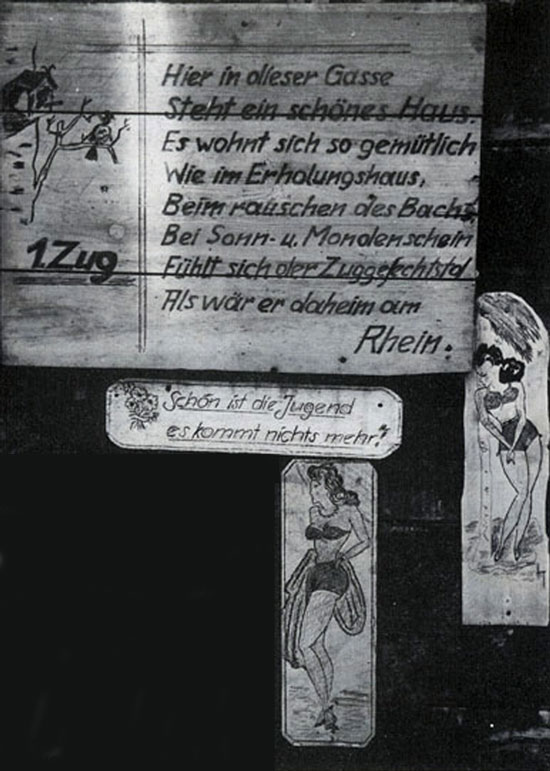 Hier in dieser Gasse
Steht ein schönes Haus.
Es wohnt sich so gemütlich
Wie im Erholungshaus,
Beim rauschen des Bachs,
Bei Sonn- u. Mondenschein
Fühlt sich der Zuggefechtstd
Als wär er daheim am
Rhein.
1. Zug
Schön ist die Jugend
es kommt nichts mehr!